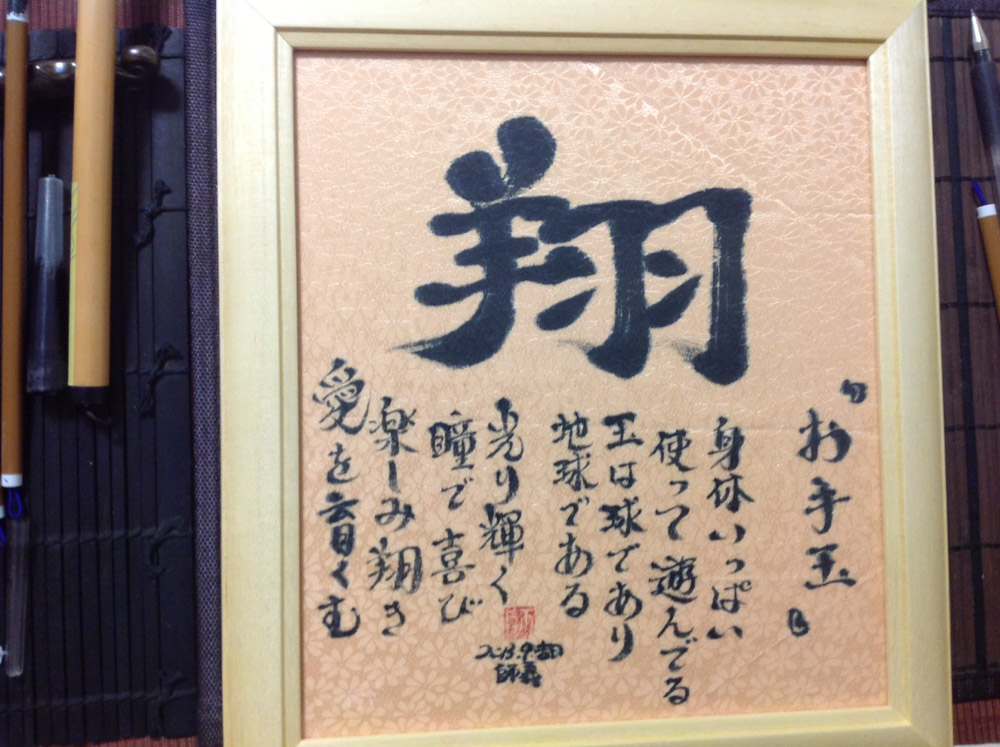 翔
〝お手玉〟
身体いっぱい
使って遊んでる
玉は球であり
地球である
光り輝く
瞳で喜び
楽しみ翔き
愛を育くむ